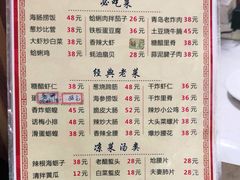 必吃菜
海肠捞饭 48元
蛤蜊肉拌茄子 26元
青岛老炸肉 38元
葱炒比管 38元
铁板蛋豆腐 36元
土豆烧牛腩 58元
大虾炒白菜 38元
香辣大虾
糖醋里脊 38元
蛤蜊鸡 38元
蚝油扇贝 28元
蒜泥腰子肉 38元
经典老菜
糖醋虾仁 38元
葱烧蹄筋 58元
干炸虾仁 38元
海参捞饭 58元
干炸里脊 38元
香炸蛎蝗 38元
肉末海参 58元
干炸蛎蝗 38元
话梅小排 48元
大头菜爆片 38元
滑蛋蛎蝗 38元
爆炒腰花 38元
凉菜汤类
辣根海蛎子 38元
老醋蜇头 38元
炝腰片 38元
清拌黄瓜 12元
老醋花生 18元
夫妻肺片 38元